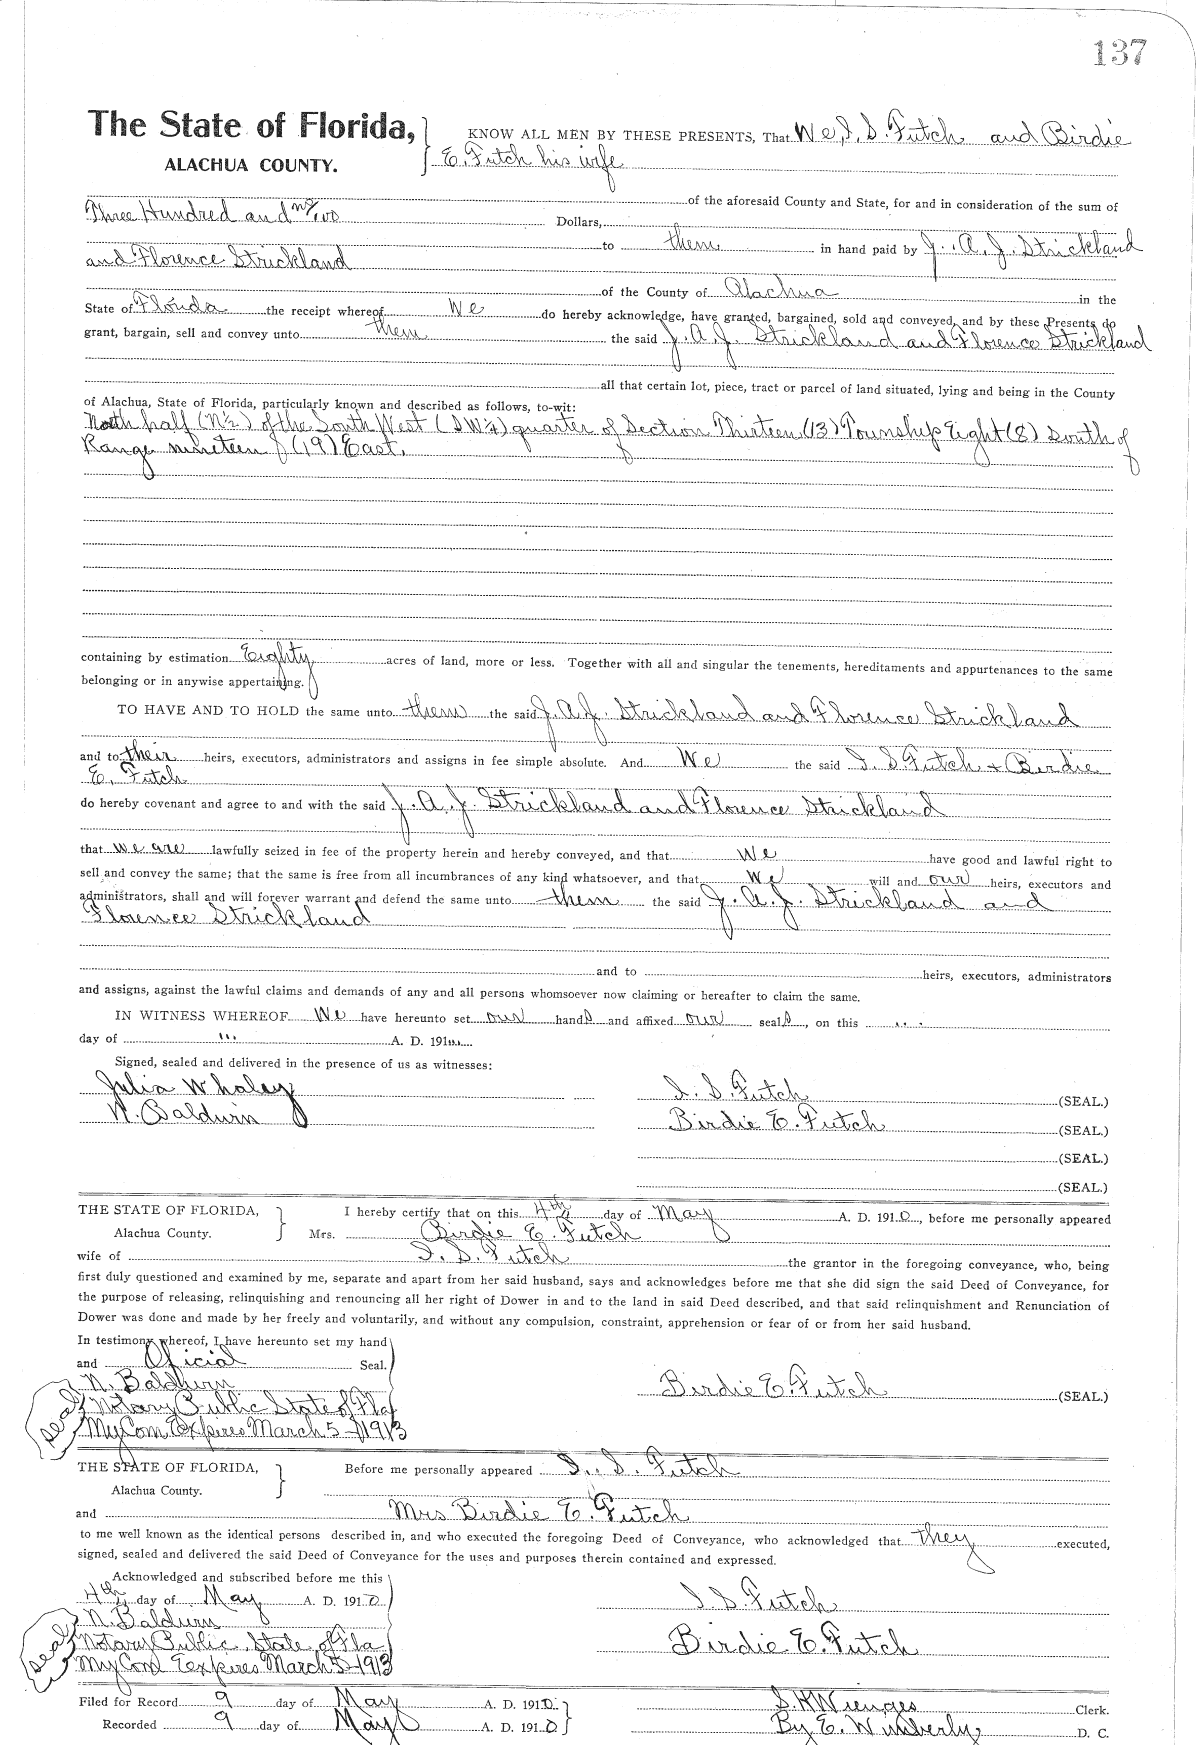 137
The State of Florida, KNOW ALL MEN BY THESE PRESENTS, That We, I. S. Futch and Birdie
ALACHUA COUNTY. E. Futch his wife
of the aforesaid County and State, for and in consideration of the sum of
Three Hundred and no/100 Dollars,
to them in hand paid by J. A. J. Strickland
and Florence Strickland
of the County of Alachua in the
State of Florida the receipt whereof We do hereby acknowledge, have granted, bargained, sold and conveyed, and by these Presents do
grant, bargain, sell and convey unto them the said J. A. J. Strickland and Florence Strickland
all that certain lot, piece, tract or parcel of land situated, lying and being in the County
of Alachua, State of Florida, particularly known and described as follows, to-wit:
North half (N½) of the South West (SW¼) quarter of Section Thirteen (13) Township Eight (8) South of
Range nineteen (19) East.
containing by estimation Eighty acres of land, more or less. Together with all and singular the tenements, hereditaments and appurtenances to the same
belonging or in anywise appertaining.
TO HAVE AND TO HOLD the same unto them the said J. A. J. Strickland and Florence Strickland
and to their heirs, executors, administrators and assigns in fee simple absolute. And We the said I. S. Futch + Birdie
E. Futch
do hereby covenant and agree to and with the said J. A. J. Strickland and Florence Strickland
that we are lawfully seized in fee of the property herein and hereby conveyed, and that We have good and lawful right to
sell and convey the same; that the same is free from all incumbrances of any kind whatsoever, and that We will and our heirs, executors and
administrators, shall and will forever warrant and defend the same unto them the said J. A. J. Strickland and
Florence Strickland
and to heirs, executors, administrators
and assigns, against the lawful claims and demands of any and all persons whomsoever now claiming or hereafter to claim the same.
IN WITNESS WHEREOF We have hereunto set our hands and affixed our seals, on this ...
day of "' A. D. 191...
Signed, sealed and delivered in the presence of us as witnesses:
Julia Whaley I. S. Futch (SEAL.)
N. Baldwin Birdie E. Futch (SEAL.)
(SEAL.)
(SEAL.)
THE STATE OF FLORIDA, I hereby certify that on this 4th day of May A. D. 1910, before me personally appeared
Alachua County. Mrs. Birdie E. Futch
wife of I. S. Futch the grantor in the foregoing conveyance, who, being
first duly questioned and examined by me, separate and apart from her said husband, says and acknowledges before me that she did sign the said Deed of Conveyance, for
the purpose of releasing, relinquishing and renouncing all her right of Dower in and to the land in said Deed described, and that said relinquishment and Renunciation of
Dower was done and made by her freely and voluntarily, and without any compulsion, constraint, apprehension or fear of or from her said husband.
In testimony whereof, I have hereunto set my hand
and Oficial Seal.
N. Baldwin Birdie E. Futch (SEAL.)
seal Notary Public State of Fla
My Com Expires March 5-1913
THE STATE OF FLORIDA, Before me personally appeared I. S. Futch
Alachua County.
and Mrs Birdie E. Futch
to me well known as the identical persons described in, and who executed the foregoing Deed of Conveyance, who acknowledged that they executed,
signed, sealed and delivered the said Deed of Conveyance for the uses and purposes therein contained and expressed.
Acknowledged and subscribed before me this
4th day of May A. D. 1910 I. S. Futch
N. Baldwin
seal Notary Public State of Fla Birdie E. Futch
My Com Eexpires March 5-1913
Filed for Record 9 day of May A. D. 1910 S. H. Wienges Clerk.
Recorded 9 day of May A. D. 1910 By E. Wimberly D. C.